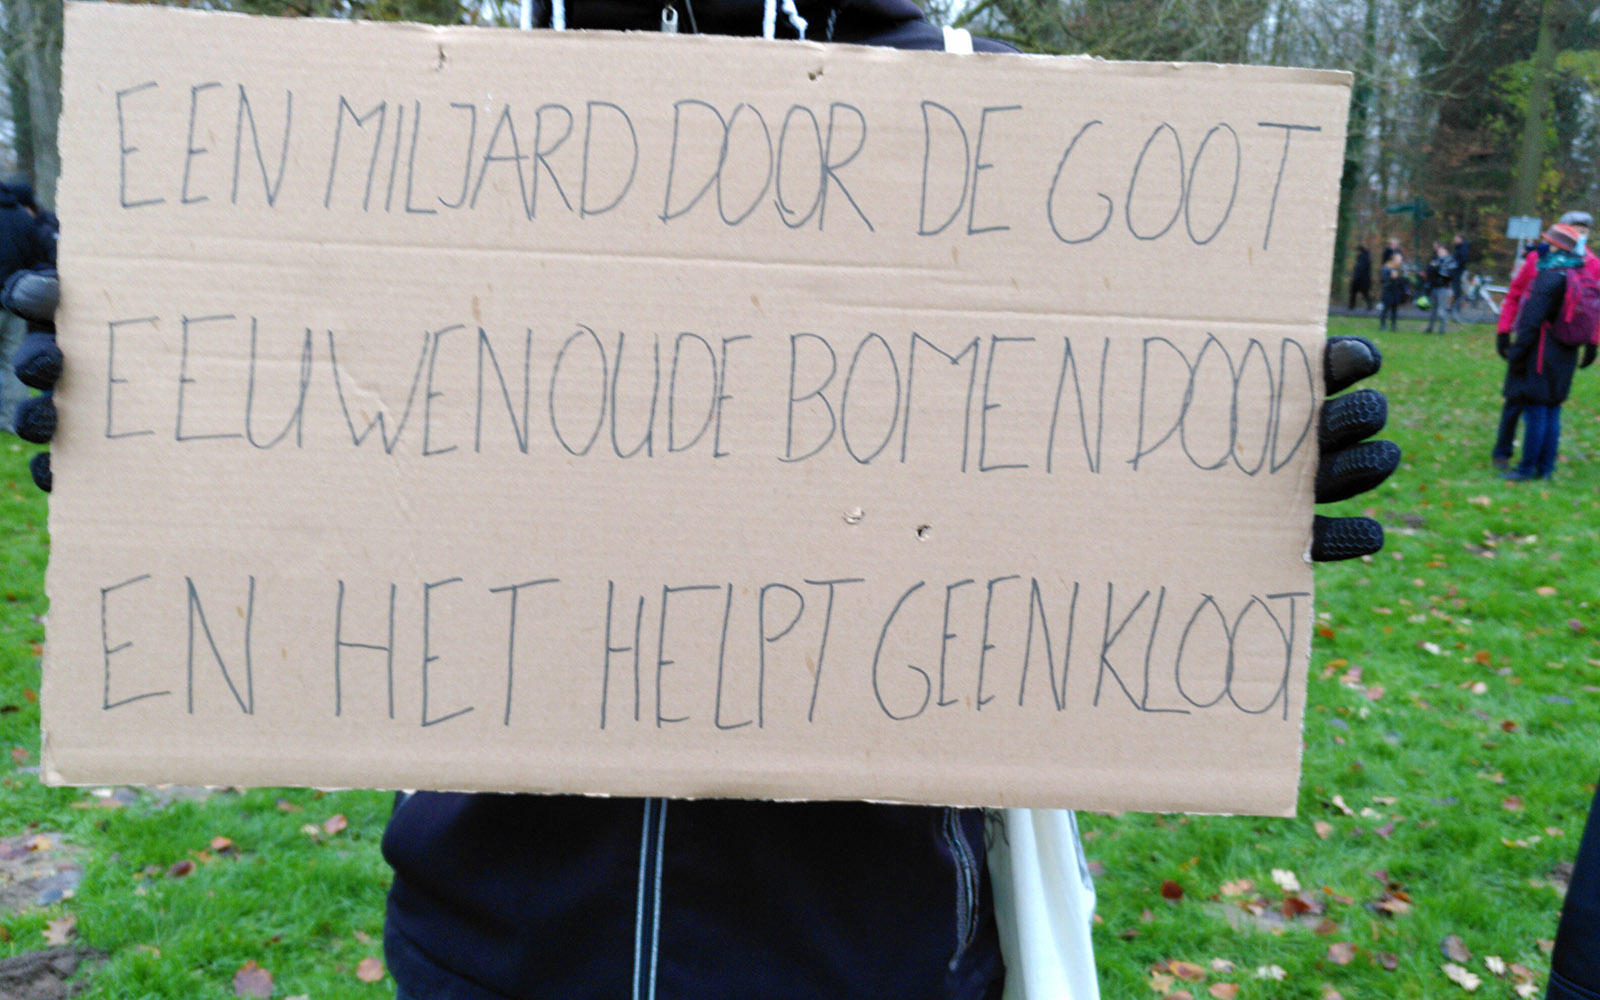 EEN MILJARD DOOR DE GOOT
EEUWENOUDE BOMEN DOOD
EN HET HELPT GEEN KLOOT